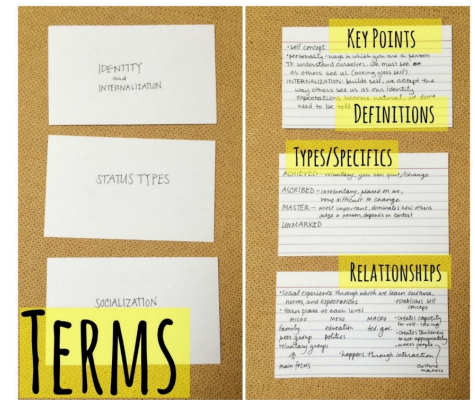 IDENTITY
and
INTERNALIZATION
STATUS TYPES
SOCIALIZATION
TERMS
KEY POINTS
• self concept
• personality - ways in which you are a person
To understand ourselves, we must see
as others see us (looking glass self)
INTERNALIZATION: builds self, we accept the
way others see us as our identity
expectations become natural, we don't
need to be told
DEFINITIONS
TYPES/SPECIFICS
ACHIEVED - voluntary, you can quit/change
ASCRIBED - involuntary, placed on us,
very difficult to change
MASTER - most important, dominates how others
judge a person, depends on context
UNMARKED
RELATIONSHIPS
• Social experience through which we learn culture,
norms, and expectations
• establishes self
concept
• takes place at each level
MICRO MESO MACRO
family education fed. gov.
peer group politics
voluntary groups
main focus
• creates capacity
for role-taking
• creates tendency
to act appropriately
makes people
• happens through interaction
culture